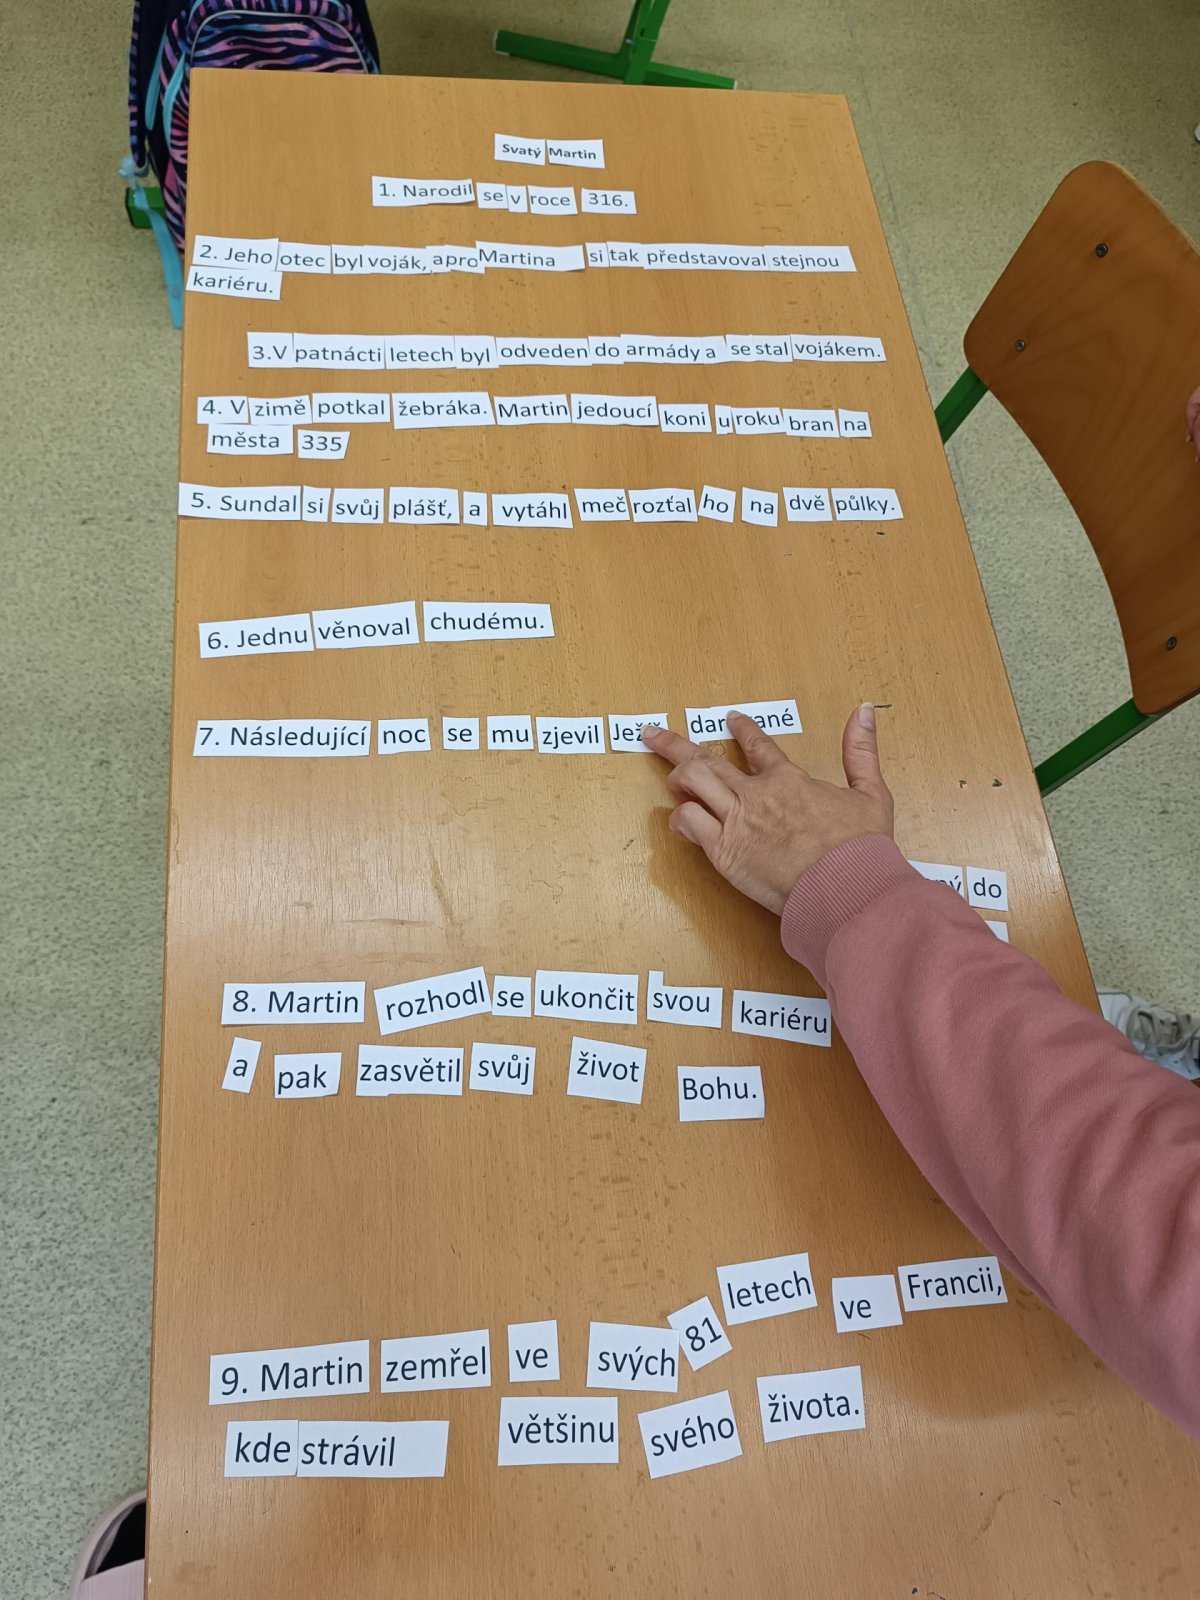 Svatý Martin
1. Narodil se v roce 316.
2. Jeho otec byl voják, a pro Martina si tak představoval stejnou
kariéru.
3.V patnácti letech byl odveden do armády a se stal vojákem.
4. V zimě potkal žebráka. Martin jedoucí koni u roku bran na
města 335
5. Sundal si svůj plášť, a vytáhl meč rozťal ho na dvě půlky.
6. Jednu věnoval chudému.
7. Následující noc se mu zjevil
do
8. Martin rozhodl se ukončit svou kariéru
a pak zasvětil svůj život Bohu.
9. Martin zemřel ve svých 81 letech ve Francii,
kde strávil většinu svého života.